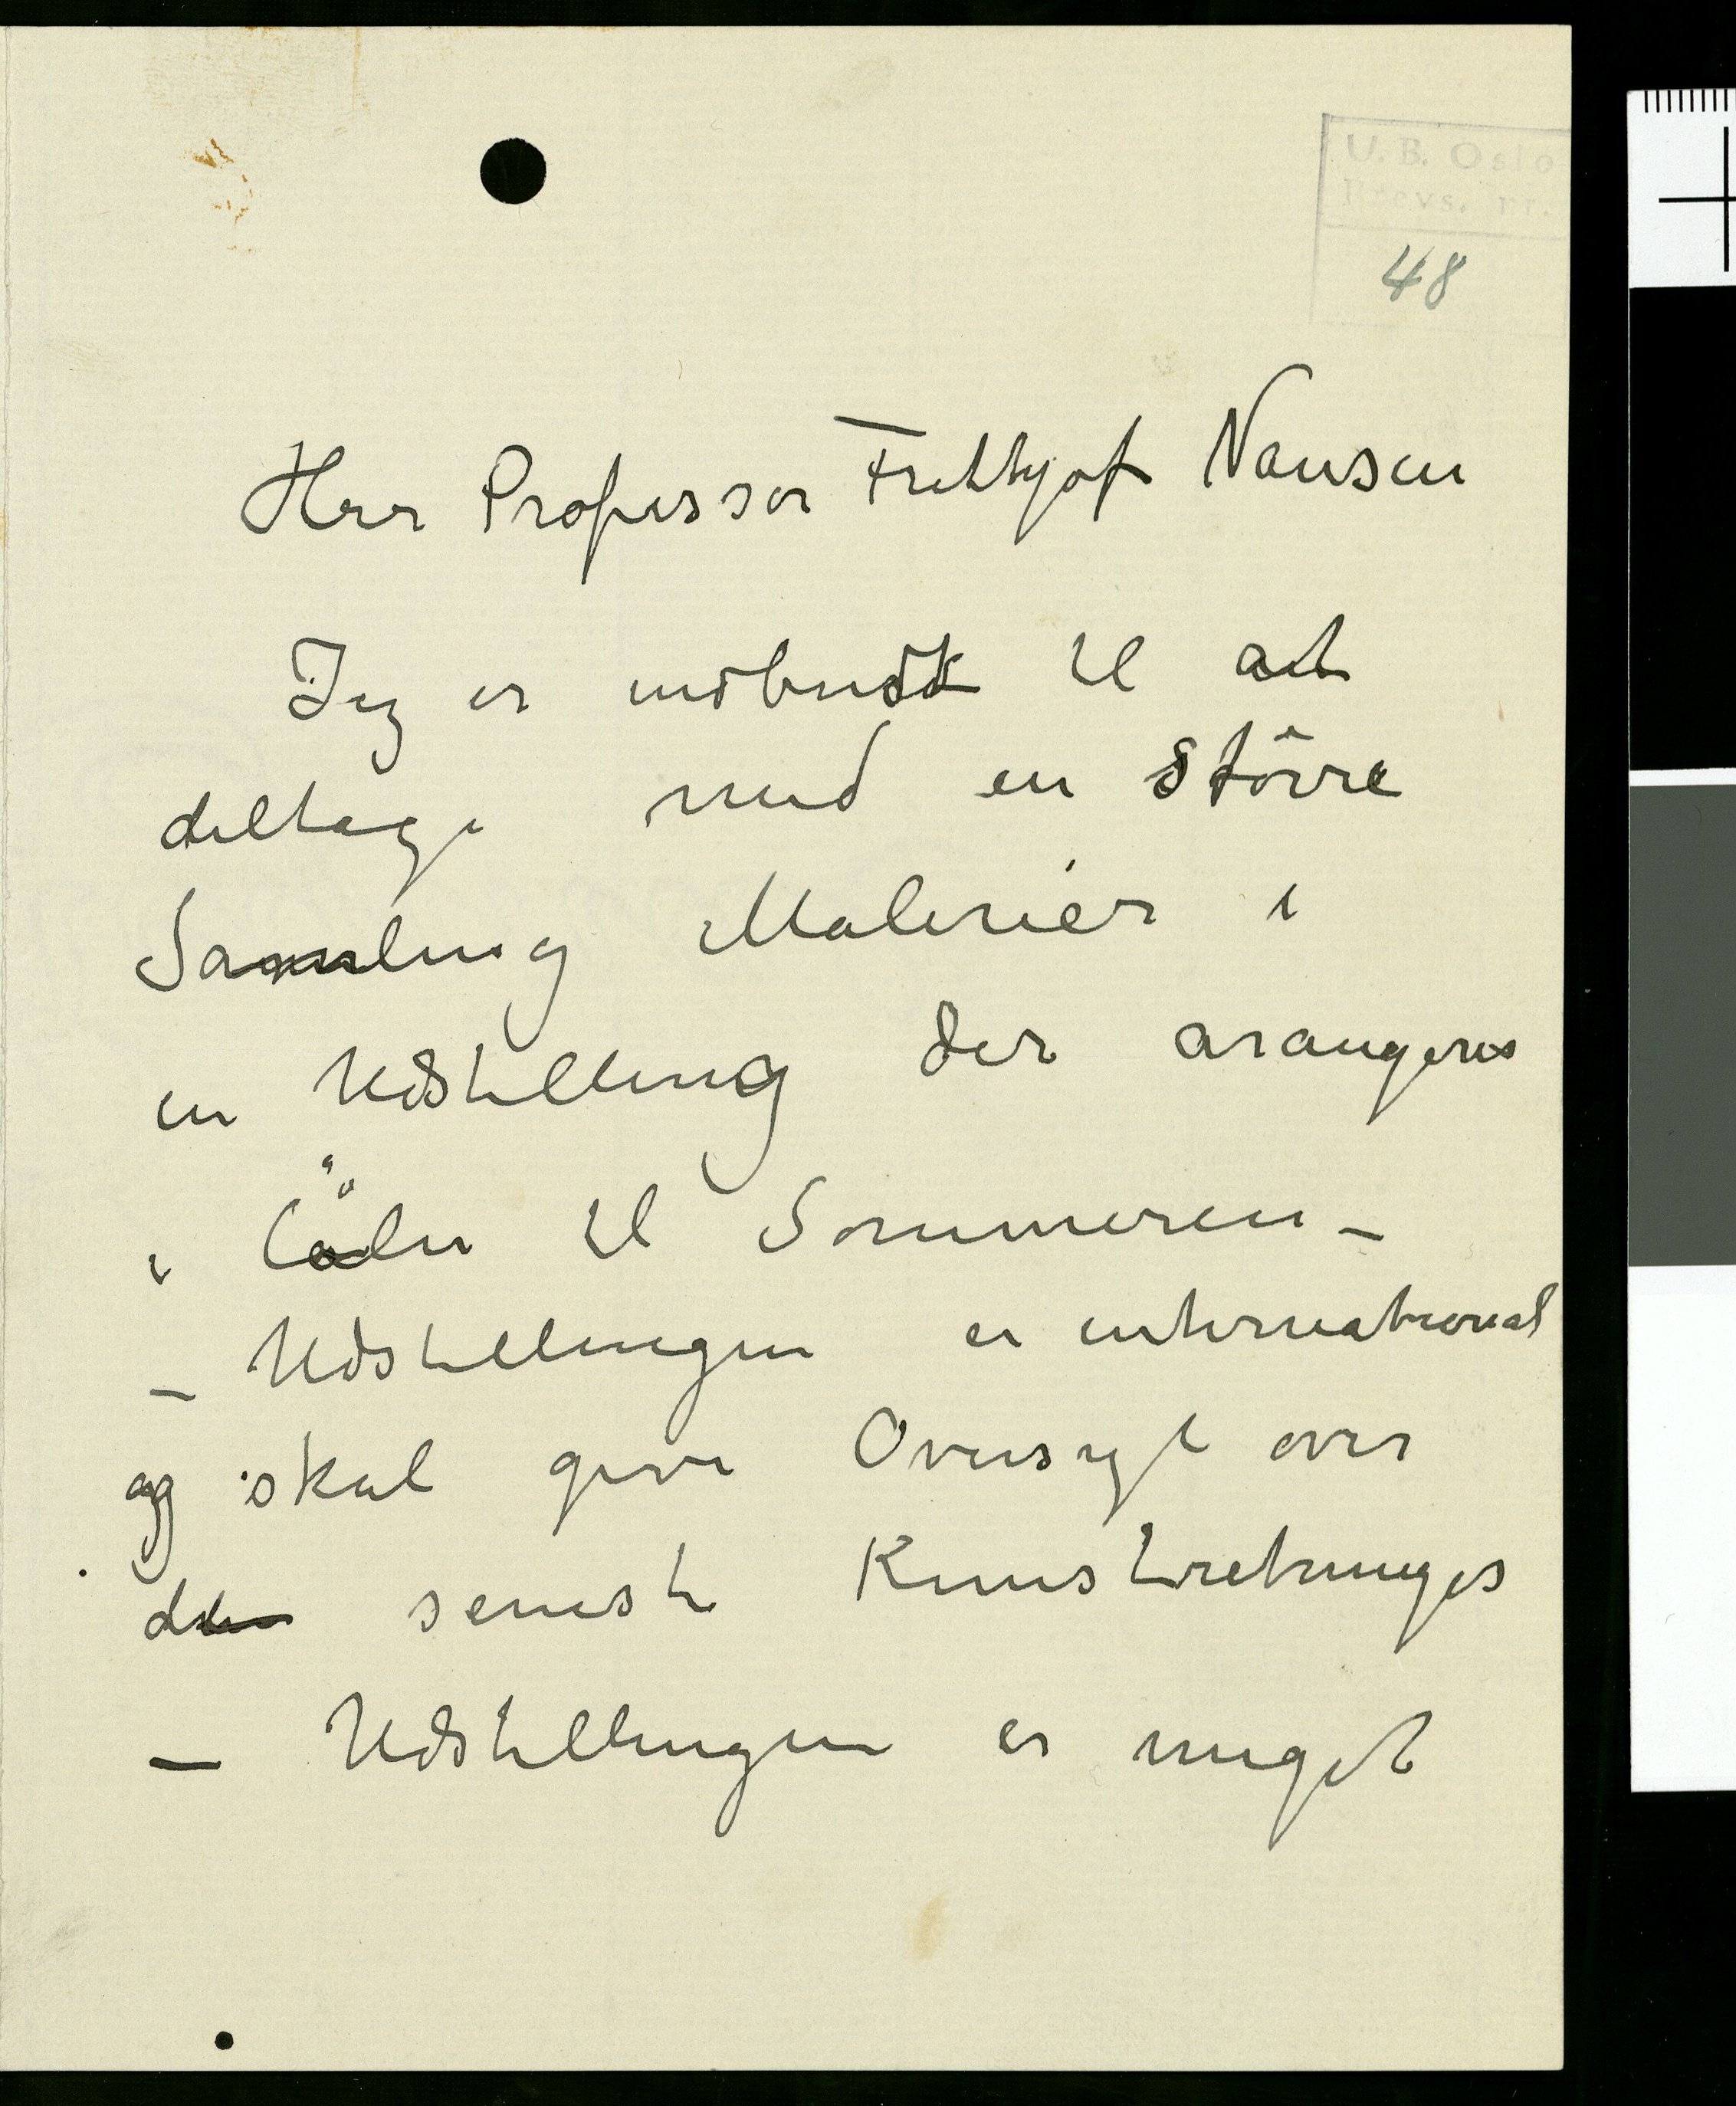 U. B. Oslo
Brevs. nr.
48
Herr Professor Frithjof Nansen
Jeg er indbudt til at
deltage med en större
Samling Malerier i
en Udstilling der arangeres
i Cöln til Sommeren –
– Udstillingen er international
og skal give Oversigt over
den seneste Kunstretninger
– Udstillingen er meget